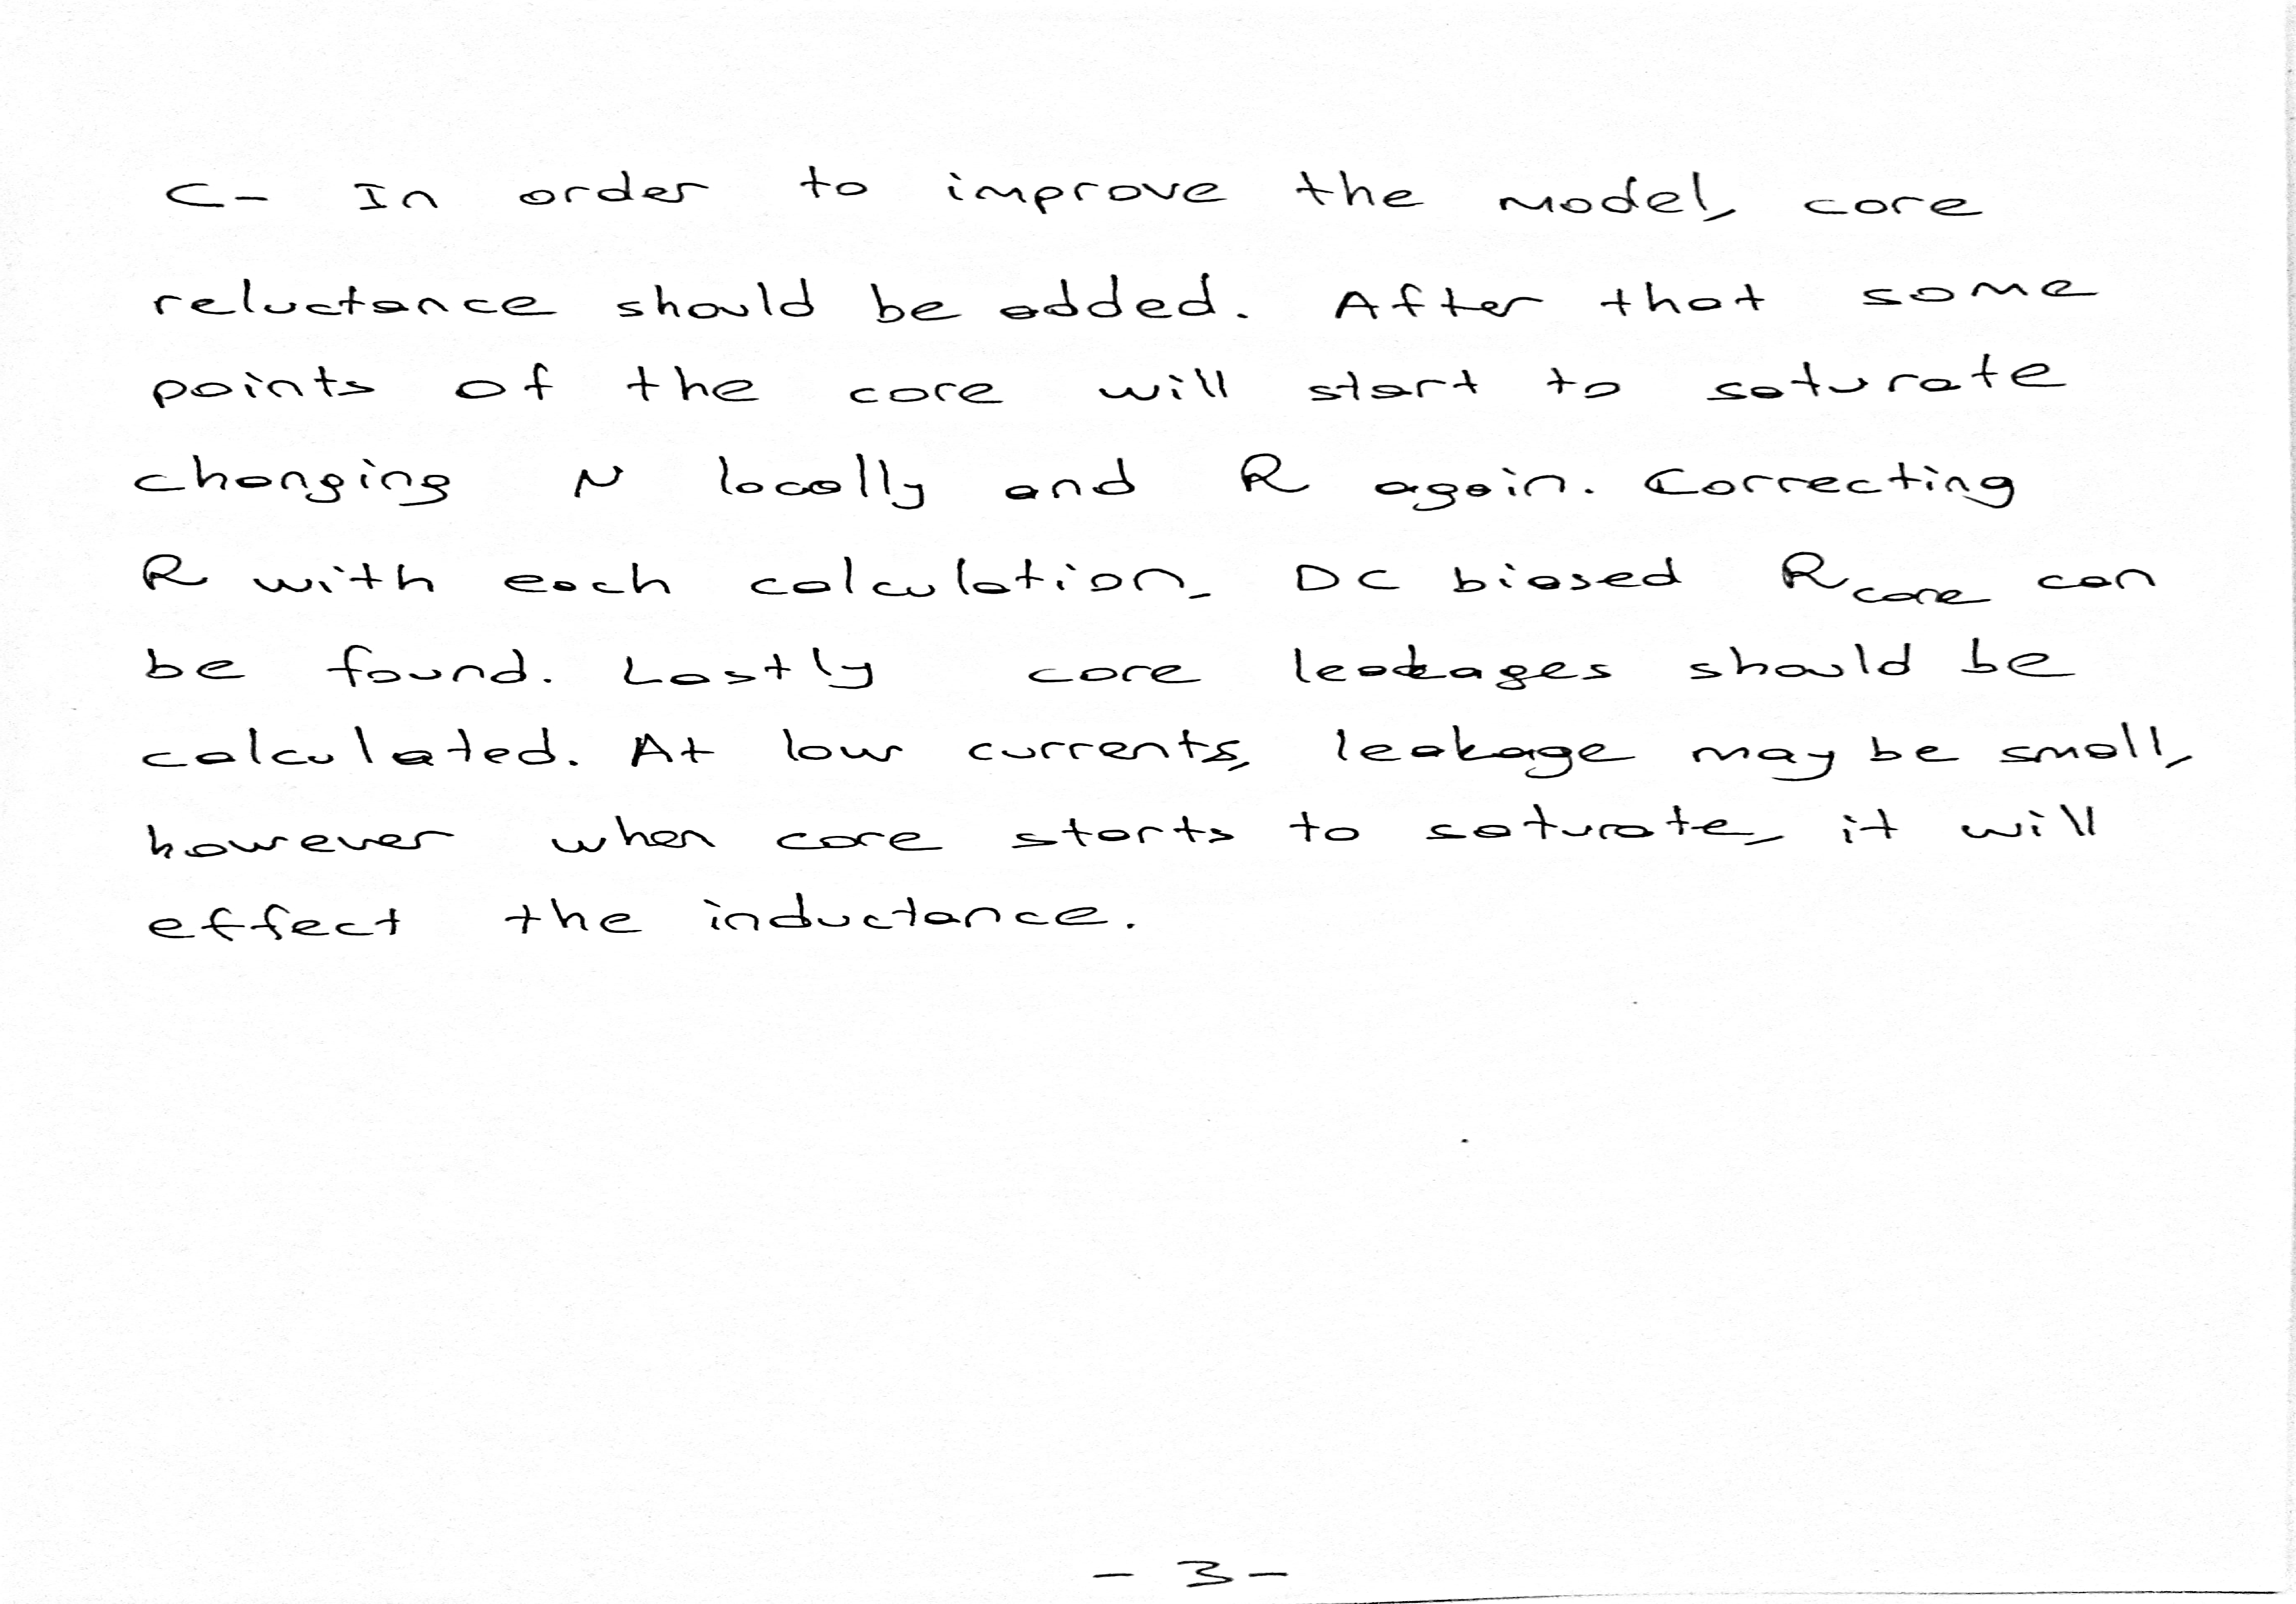 C- In order to improve the model, core
reluctance should be added. After that some
points of the core will start to saturate
changing N locally and R again. Correcting
R with each calculation, DC biased Rcore can
be found. Lastly core leakages should be
calculated. At low currents, leakage may be small,
however when core starts to saturate, it will
effect the inductance.
- 3 -